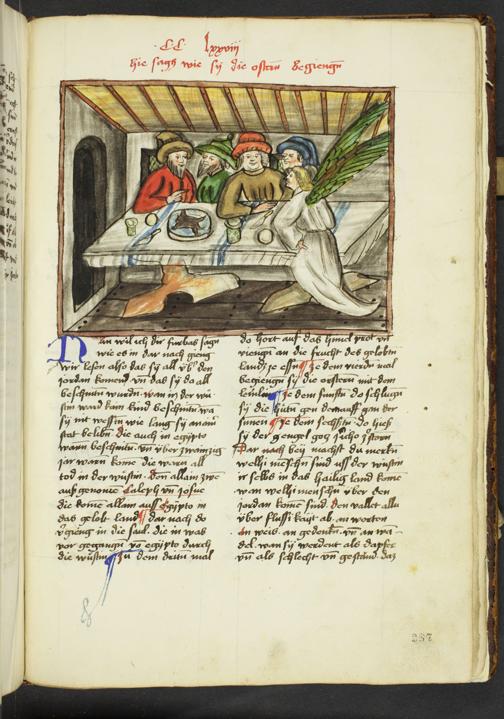 CC lxxviij
hie sagt wie sÿ die ostern begiengn
Nun wil ich dir furbas sagn
wie es in dar nach gieng
wir lesen also das sÿ all vb den
jordan komend vn das sÿ do all
beschnitn wurdn wan in der wu
stin ward kain kind beschnitn wa
sÿ nit westn wie lang sÿ an ainr
stat belibn die auch in egipto
warn beschnitn vn vber zwainczig
jar warn kome die warn all
tod in der wustin den allain zwe
aussgenome Caleph vn josue
die kome allain auss Egipto in
das gelob land dar nach do
gieng in die sul die in was
vor gegangn vo egipto durch
die wustin zu dem dritn mal
do hort auf das himel prot vn
viengn an die frucht des gelobtn
landz ze essn ze dem vierdn mal
begiengn sÿ die ostern mit dem
lemlin ze dem funftn do schlugn
sÿ die hutn gen dem auff gan der
sunnen ze dem sechstn do hiess
sÿ der engel gog jericho zstorn
Dar nach beÿ machst du merckn
welhi menschn sind auss der wustin
ir selbs in das hailig land kome
wan welhi menschn vber den
jordan kome sind den vallet alln
vber flussikait ab an wortn
an weis an gedenckn vn an wa
del wan sÿ werdent als dapfer
vn als schlecht vn gestand das
287